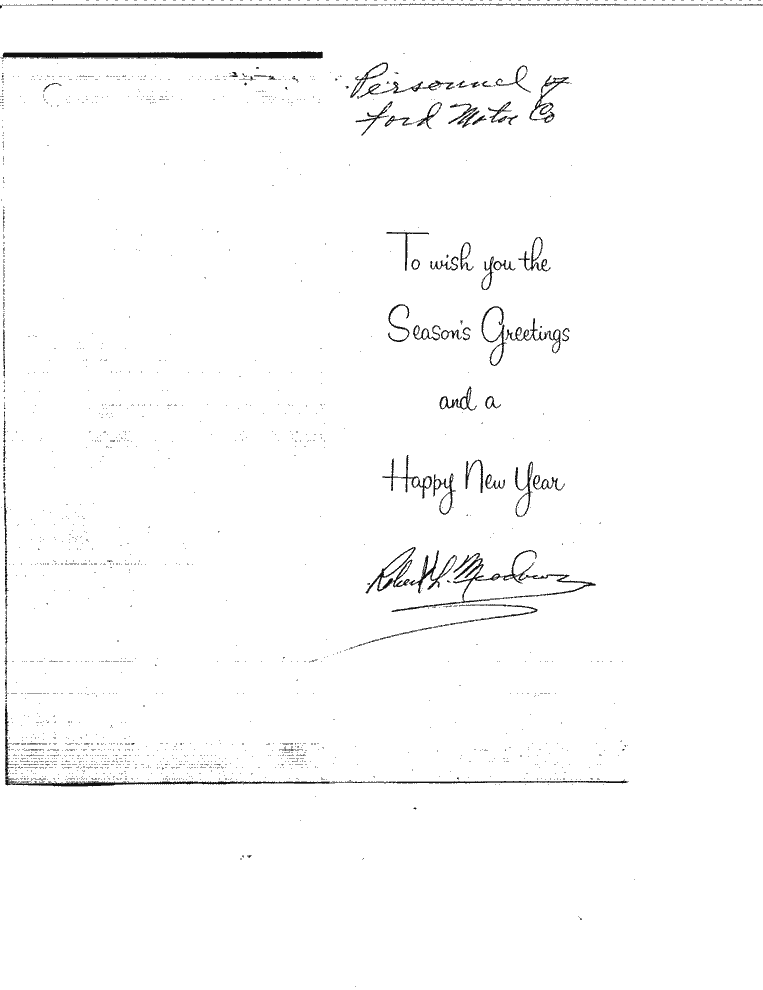 Personnel of
Ford Motor Co
To wish you the
Season's Greetings
and a
Happy New Year
Robert L. Meadows